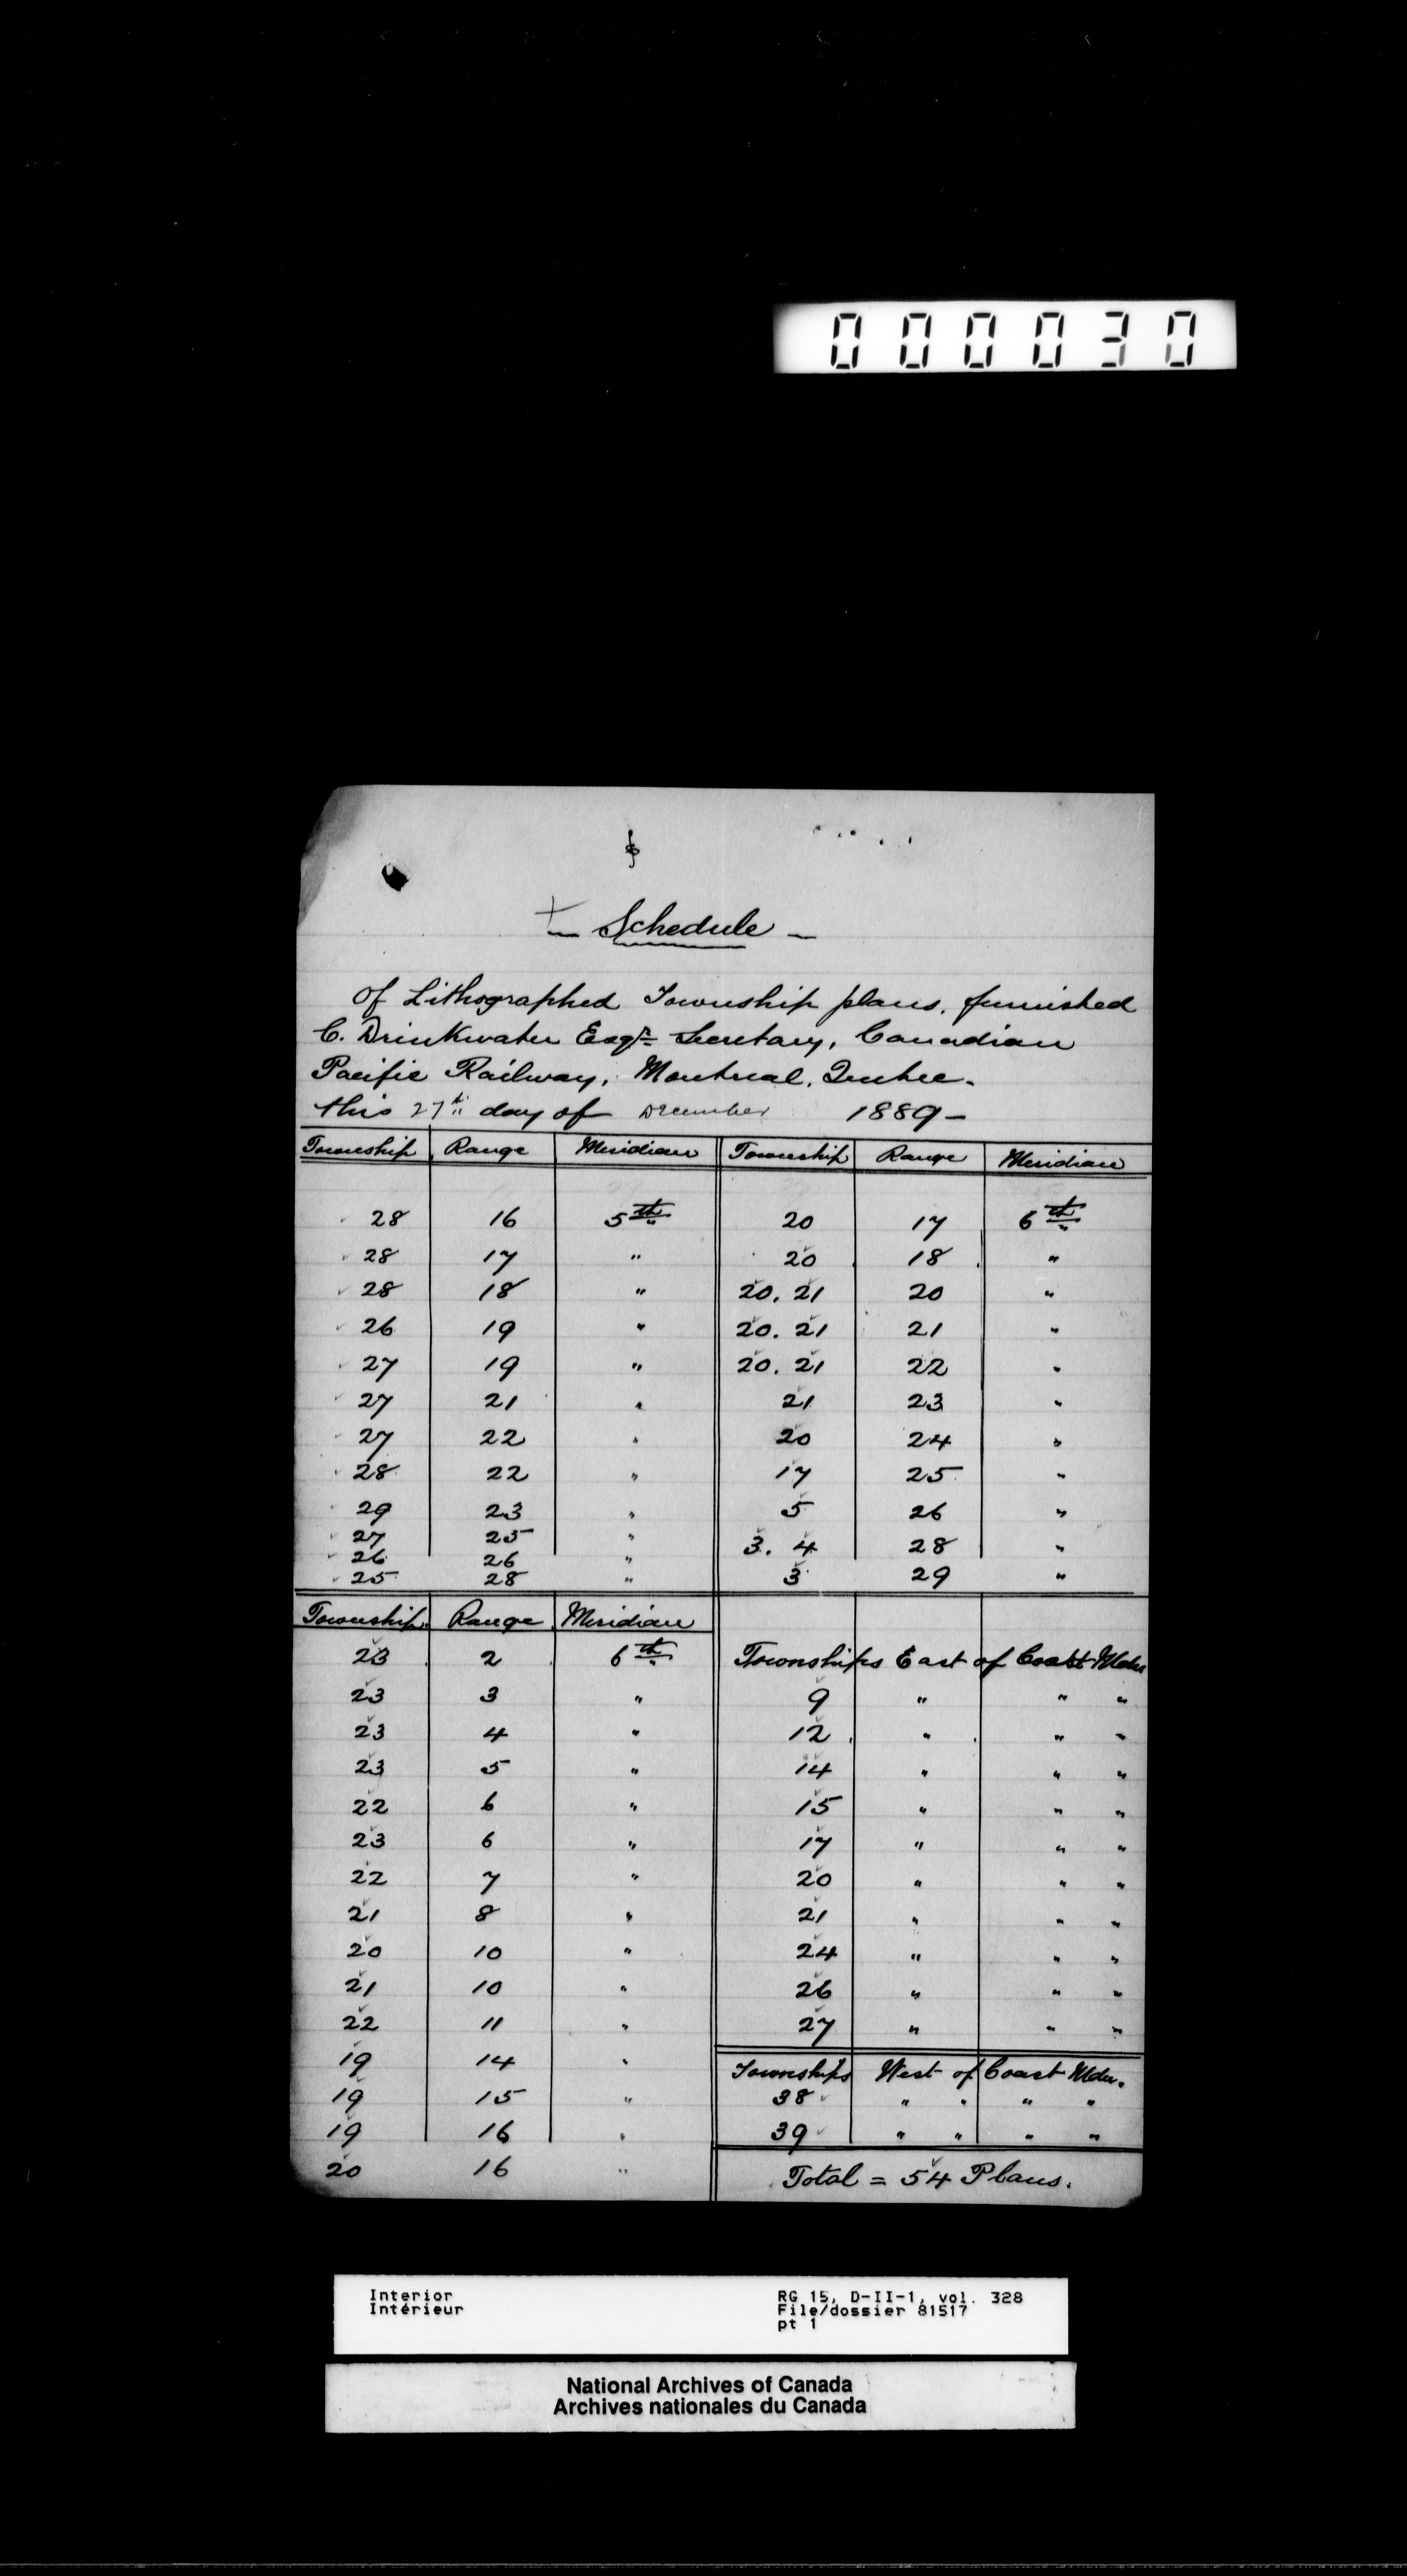 000030
Schedule
Of Lithographed Township plans, furnished
C. Drinkwater Esqr. Secretary, Canadian
Pacific Railway, Montreal, Quebec.
this 27th day of December 1889 -
Township Range Meridian Township Range Meridian
28 16 5th 20 17 6th
28 17 " 20 18 "
28 18 " 20. 21 20 "
26 19 " 20. 21 21 "
27 19 " 20. 21 22 "
27 21 " 21 23 "
27 22 " 20 24 "
28 22 " 17 25 "
29 23 " 5 26 "
27 25 " 3. 4 28 "
26 26 "
25 28 " 3 29 "
Township Range Meridian
23 2 6th Townships East of Coast Mdn
23 3 " 9 " " "
23 4 " 12 " " "
23 5 " 14 " " "
22 6 " 15 " " "
23 6 " 17 " " "
22 7 " 20 " " "
21 8 " 21 " " "
20 10 " 24 " " "
21 10 " 26 " " "
22 11 " 27 " " "
19 14 " Townships West of Coast Mdn.
19 15 " 38 " " " "
19 16 " 39 " " " "
20 16 " Total = 54 Plans.
Interior RG 15, D-II-1, vol. 328
Intérieur File/dossier 81517
pt 1
National Archives of Canada
Archives nationales du Canada